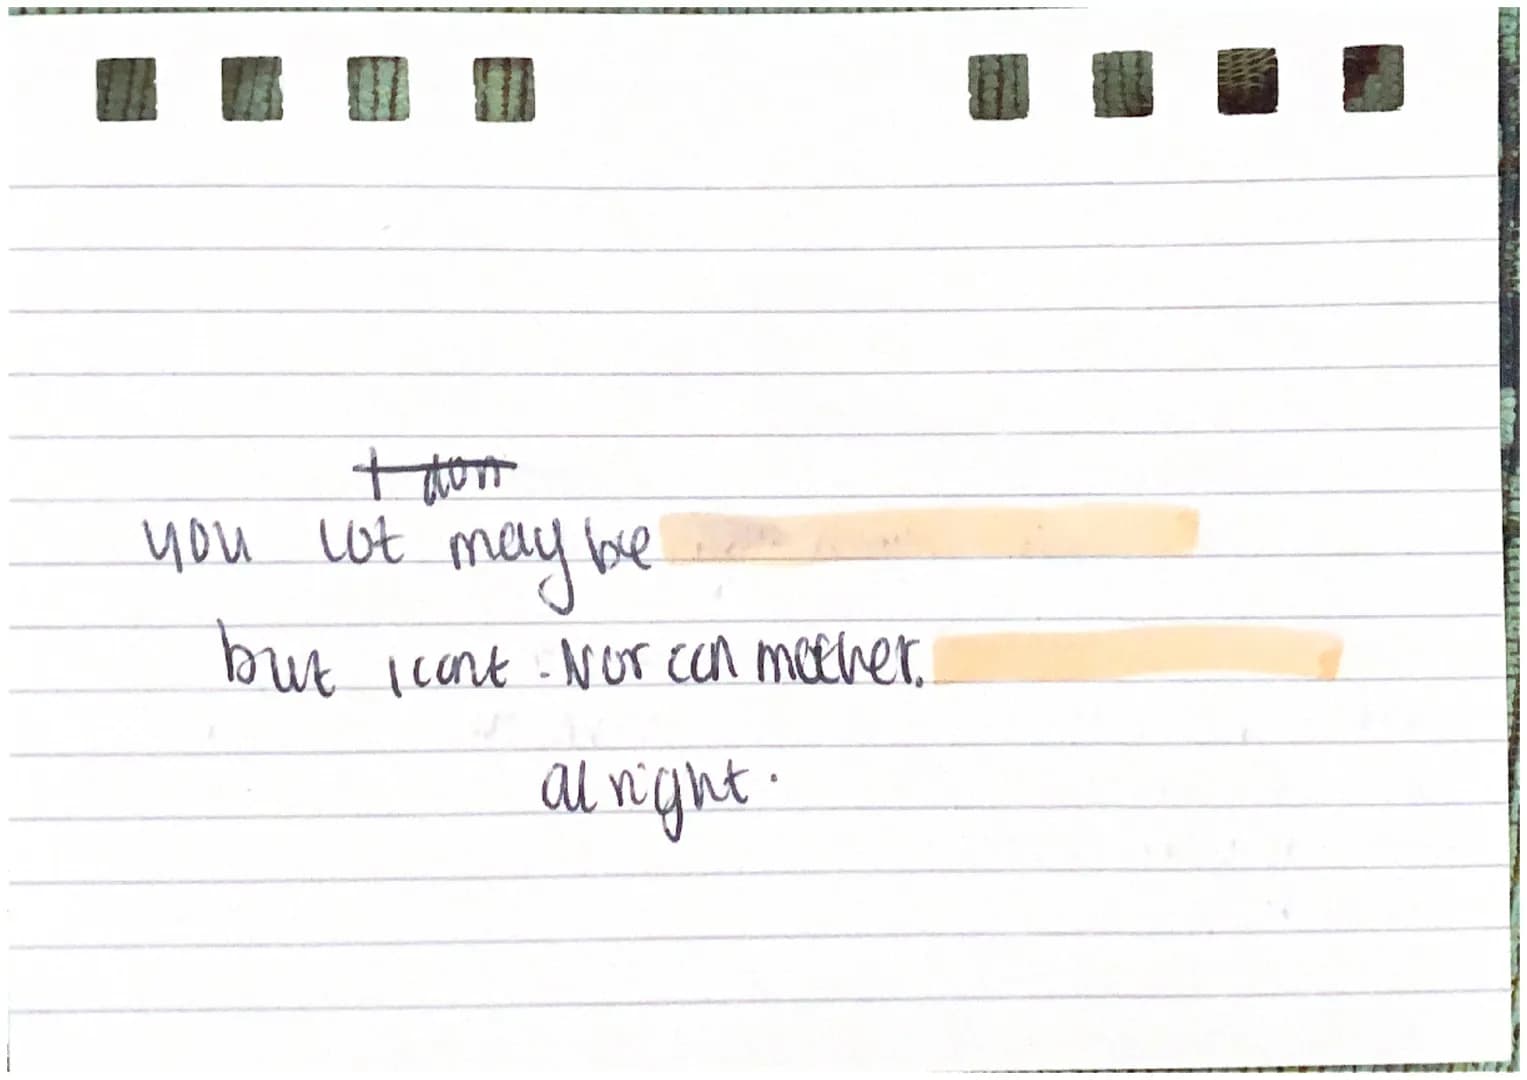 I don
you lot may be
but i cant. Nor can mother.
alright.